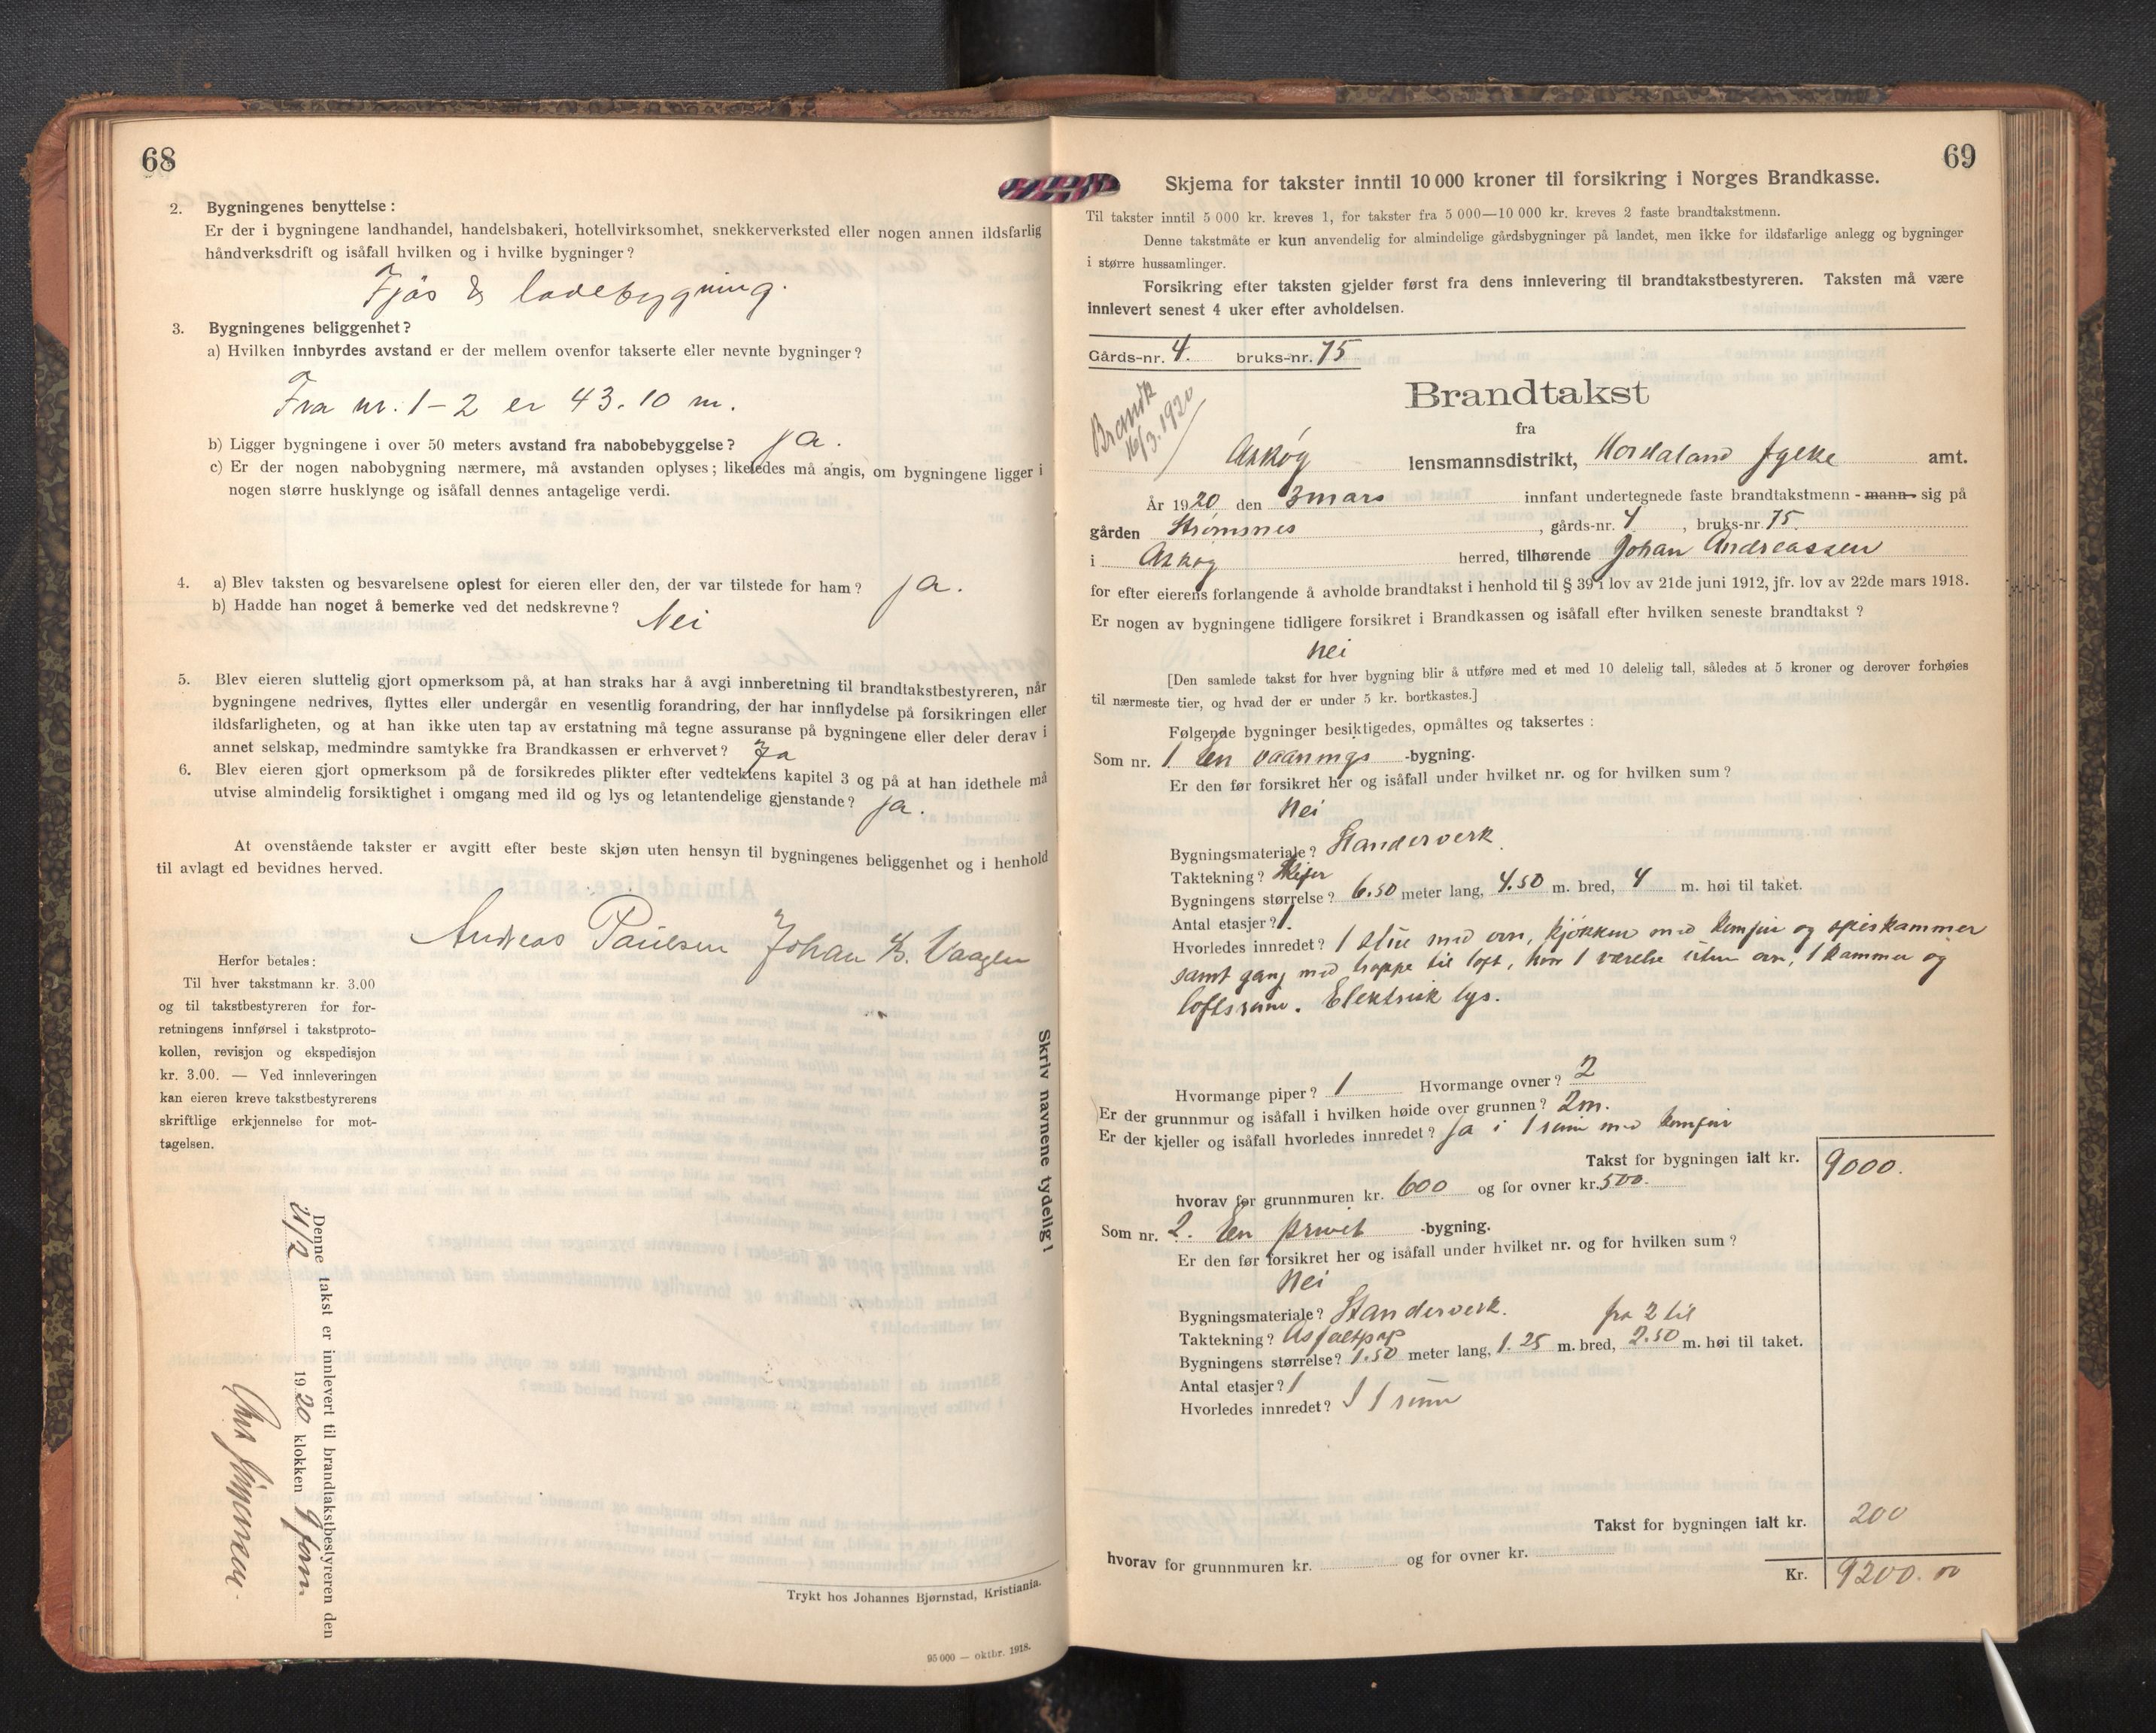 68
2. Bygningenes benyttelse:
Er der i bygningene landhandel, handelsbakeri, hotellvirksomhet, snekkerverksted eller nogen annen ildsfarlig
håndverksdrift og isåfall hvilken og i hvilke bygninger?
Fjøs & ladebygning.
3. Bygningenes beliggenhet?
a) Hvilken innbyrdes avstand er der mellem ovenfor takserte eller nevnte bygninger?
Fra nr. 1-2 er 43.10 m.
b) Ligger bygningene i over 50 meters avstand fra nabobebyggelse? ja.
c) Er der nogen nabobygning nærmere, må avstanden oplyses; likeledes må angis, om bygningene ligger i
nogen større husklynge og isåfall dennes antagelige verdi.
4. a) Blev taksten og besvarelsene oplest for eieren eller den, der var tilstede for ham? ja.
b) Hadde han noget å bemerke ved det nedskrevne? Nei
5. Blev eieren sluttelig gjort opmerksom på, at han straks har å avgi innberetning til brandtakstbestyreren, når
bygningene nedrives, flyttes eller undergår en vesentlig forandring, der har innflydelse på forsikringen eller
ildsfarligheten, og at han ikke uten tap av erstatning må tegne assuranse på bygningene eller deler derav i
annet selskap, medmindre samtykke fra Brandkassen er erhvervet? Ja
6. Blev eieren gjort opmerksom på de forsikredes plikter efter vedtektens kapitel 3 og på at han idethele må
utvise almindelig forsiktighet i omgang med ild og lys og letantendelige gjenstande? ja.
At ovenstående takster er avgitt efter beste skjøn uten hensyn til bygningenes beliggenhet og i henhold
til avlagt ed bevidnes herved.
Andreas Paulsen Johan B. Vaagen
Herfor betales:
Til hver takstmann kr. 3.00
og til takstbestyreren for for-
retningens innførsel i takstproto-
kollen, revisjon og ekspedisjon
kr. 3.00. — Ved innleveringen
kan eieren kreve takstbestyrerens
skriftlige erkjennelse for mot-
tagelsen.
Skriv navnene tydelig!
Denne takst er innlevert til brandtakstbestyreren den
21/2 1920 klokken 9 form.
Trykt hos Johannes Bjørnstad, Kristiania.
95 000 — oktbr. 1918.
69
Skjema for takster inntil 10 000 kroner til forsikring i Norges Brandkasse.
Til takster inntil 5 000 kr. kreves 1, for takster fra 5 000—10 000 kr. kreves 2 faste brandtakstmenn.
Denne takstmåte er kun anvendelig for almindelige gårdsbygninger på landet, men ikke for ildsfarlige anlegg og bygninger
i større hussamlinger.
Forsikring efter taksten gjelder først fra dens innlevering til brandtakstbestyreren. Taksten må være
innlevert senest 4 uker efter avholdelsen.
Gårds-nr. 4. bruks-nr. 75
Brandk
16/3.1920
Brandtakst
fra
Askøy lensmannsdistrikt, Hordaland fylke amt.
År 1920 den 3 mars innfant undertegnede faste brandtakstmenn - mann- sig på
gården Strømsnes, gårds-nr. 4, bruks-nr. 75.
i Askøy herred, tilhørende Johan Andreassen
for efter eierens forlangende å avholde brandtakst i henhold til § 39 i lov av 21de juni 1912, jfr. lov av 22de mars 1918.
Er nogen av bygningene tidligere forsikret i Brandkassen og isåfall efter hvilken seneste brandtakst?
Nei
[Den samlede takst for hver bygning blir å utføre med et med 10 delelig tall, således at 5 kroner og derover forhøies
til nærmeste tier, og hvad der er under 5 kr. bortkastes.]
Følgende bygninger besiktigedes, opmåltes og taksertes:
Som nr. 1 En vaanings -bygning.
Er den før forsikret her og isåfall under hvilket nr. og for hvilken sum?
Nei
Bygningsmateriale? Standerverk.
Taktekning? Skifer
Bygningens størrelse? 6.50 meter lang, 4.50 m. bred, 4 m. høi til taket.
Antal etasjer? 1.
Hvorledes innredet? 1 stue med ovn, kjøkken med komfur og spiskammer
samt gang med trappe til loft, hvor 1 værelse uten ovn, 1 kammer og
loftsrum. Elektrisk lys.
Hvormange piper? 1 Hvormange ovner? 2
Er der grunnmur og isåfall i hvilken høide over grunnen? 2m.
Er der kjeller og isåfall hvorledes innredet? Ja i 1 rum med komfur
Takst for bygningen ialt kr. 9000.
hvorav for grunnmuren kr. 600 og for ovner kr. 500.
Som nr. 2. En privet -bygning.
Er den før forsikret her og isåfall under hvilket nr. og for hvilken sum?
Nei
Bygningsmateriale? Standerverk. fra 2 til
Taktekning? Asfaltpap
Bygningens størrelse? 1.50 meter lang, 1.25 m. bred, 2.50 m. høi til taket.
Antal etasjer? 1
Hvorledes innredet? I 1 rum
Takst for bygningen ialt kr. 200
hvorav for grunnmuren kr. og for ovner kr.
Kr. 9200.00